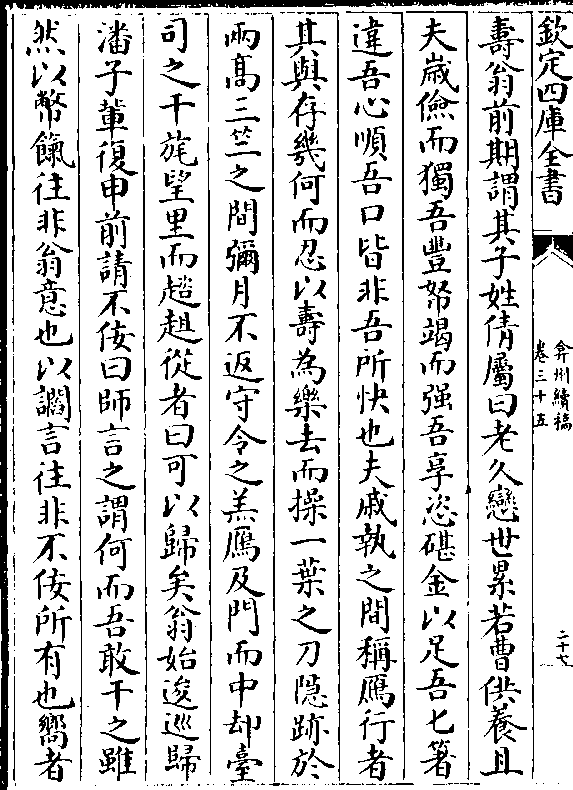 欽定四庫全書
弇州續稿
卷三十五
二十七
壽翁前期謂其子姓倩屬曰老久戀世累若曹供養且
夫嵗儉而獨吾豐帑竭而强吾享恣碪金以足吾七箸
違吾心順吾口皆非吾所快也夫戚執之間稱鴈行者
其與存幾何而忍以壽為樂去而操一葉之刀隠跡於
兩髙三竺之間彌月不返守令之羔鴈及門而中却臺
司之干旄望里而趦趄從者曰可以歸矣翁始逡巡歸
潘子輩復申前請不佞曰師言之謂何而吾敢干之雖
然以幣餼往非翁意也以讕言往非不佞所有也嚮者